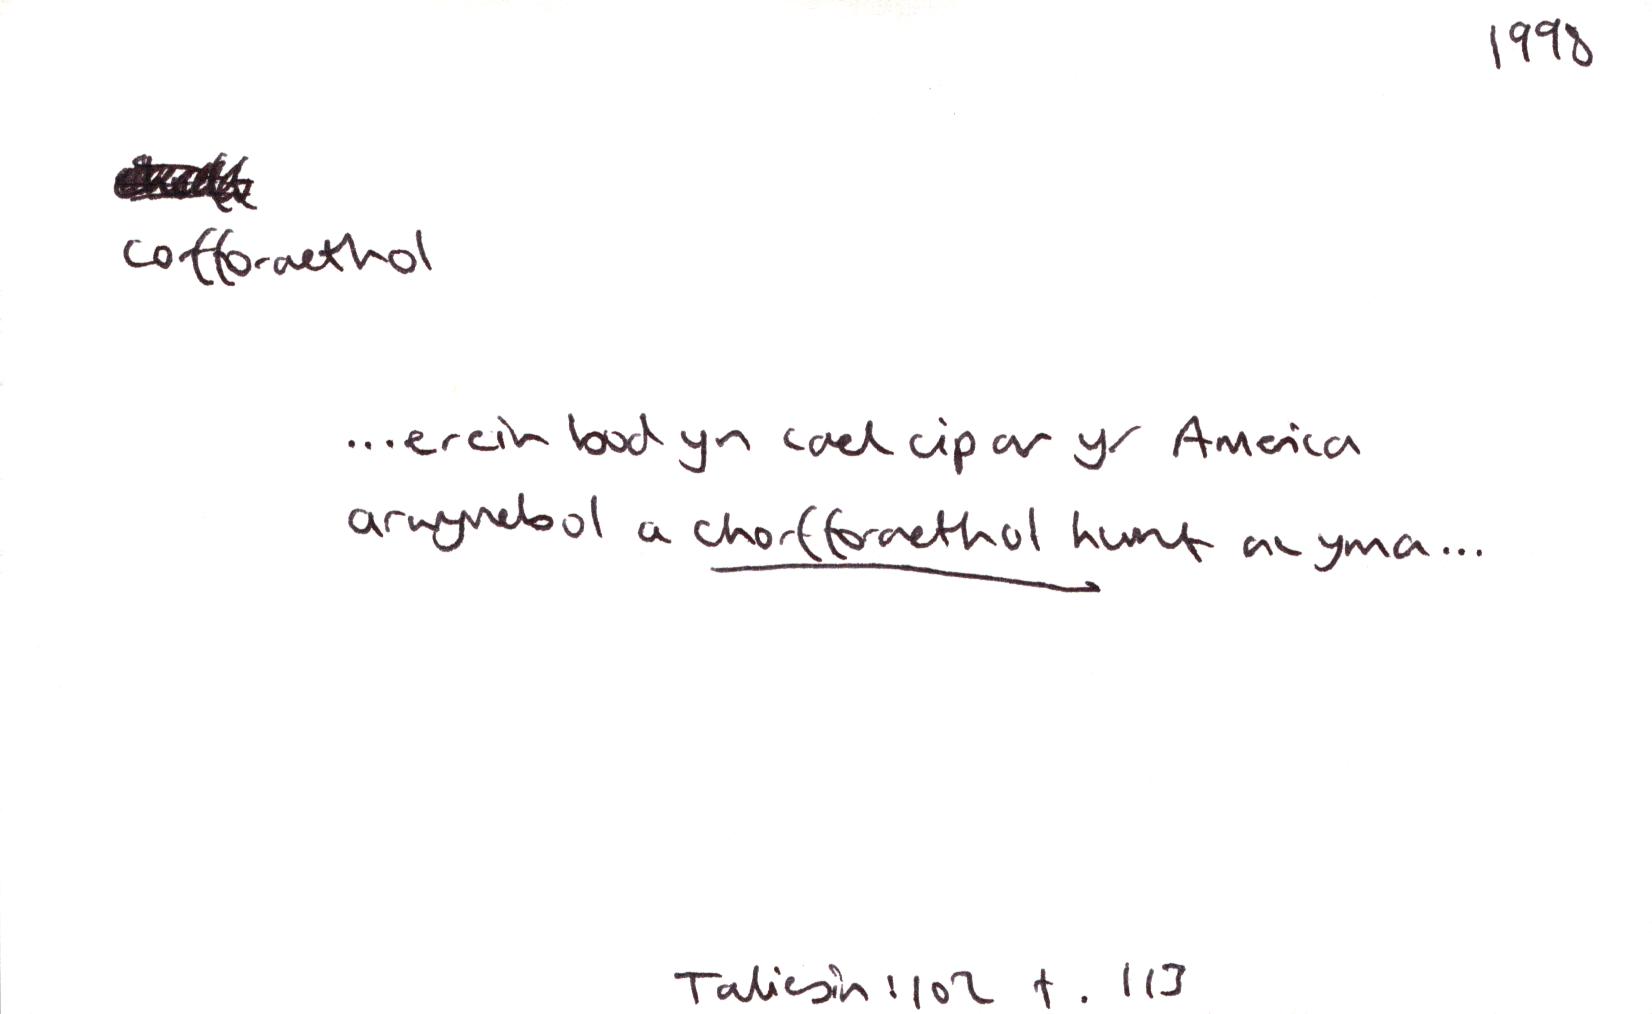 1998
corfforaethol
...er ein bod yn cael cip ar yr America
arwynebol a chorfforaethol hwnt ac yma...
Taliesin : 102 t. 113